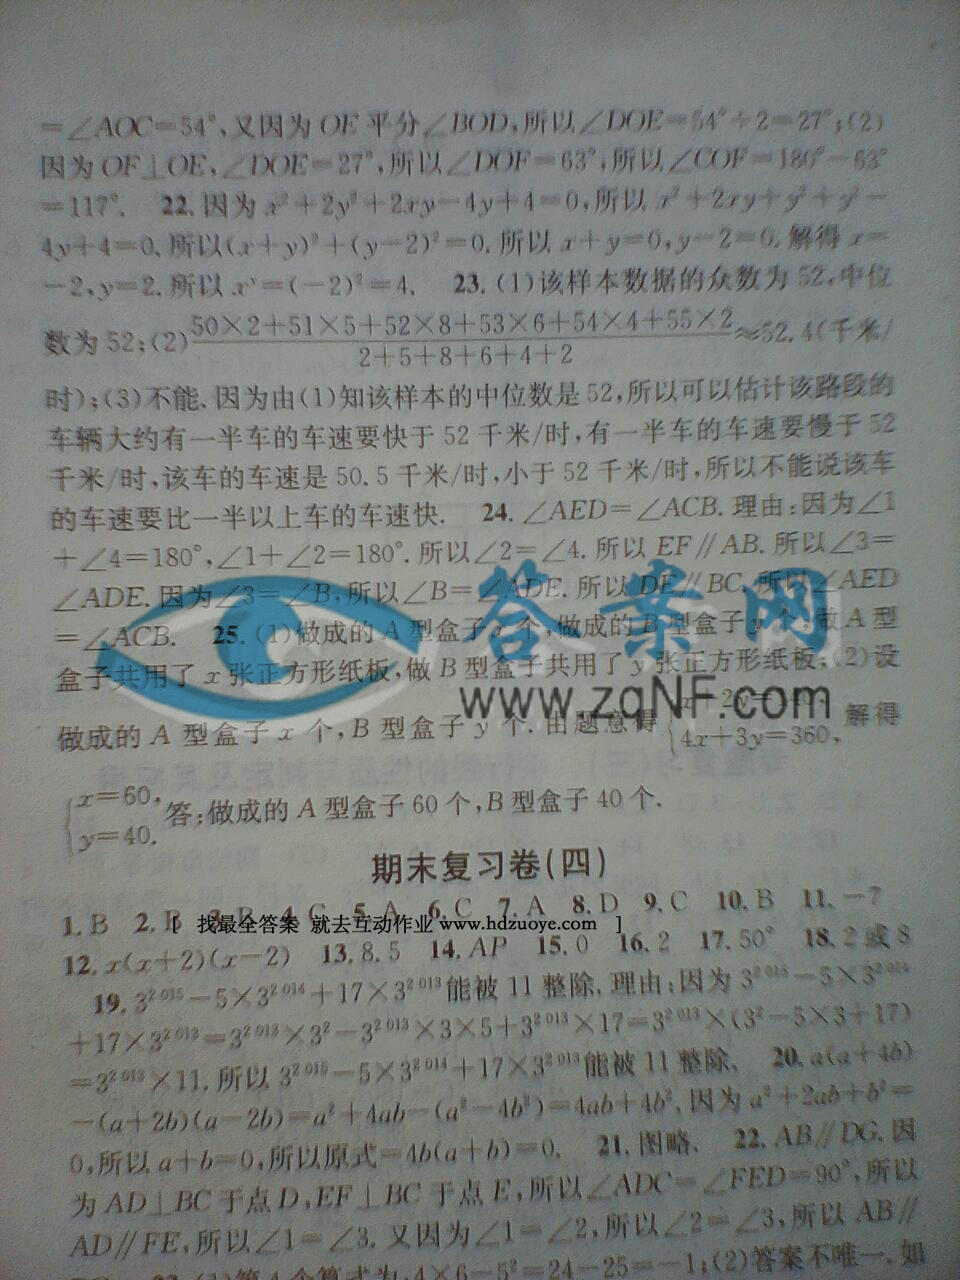 =∠AOC=54°,又因为OE平分∠BOD,所以∠DOE=54°÷2=27°;(2)
因为OF⊥OE,∠DOE=27°,所以∠DOF=63°,所以∠COF=180°-63°
=117°. 22.因为x²+2y²+2xy-4y+4=0,所以x²+2xy+y²+y²-
4y+4=0.所以(x+y)²+(y-2)²=0.所以x+y=0,y-2=0.解得x=
-2,y=2.所以xʸ=(-2)²=4. 23.(1)该样本数据的众数为52,中位
数为52;(2)(50×2+51×5+52×8+53×6+54×4+55×2)/(2+5+8+6+4+2)≈52.4(千米/
时);(3)不能.因为由(1)知该样本的中位数是52,所以可以估计该路段的
车辆大约有一半车的车速要快于52千米/时,有一半车的车速要慢于52
千米/时,该车的车速是50.5千米/时,小于52千米/时,所以不能说该车
的车速要比一半以上车的车速快. 24.∠AED=∠ACB.理由:因为∠1
+∠4=180°,∠1+∠2=180°.所以∠2=∠4.所以EF∥AB.所以∠3=
∠ADE.因为∠3=∠B,所以∠B=∠ADE.所以DE∥BC.所以∠AED
=∠ACB. 25.(1)做成的A型盒子x个,做成的B型盒子y个.做A型
盒子共用了x张正方形纸板,做B型盒子共用了y张正方形纸板;(2)设
做成的A型盒子x个,B型盒子y个.由题意得 4x+3y=360,解得
{x=60, y=40. 答:做成的A型盒子60个,B型盒子40个.
答案网
www.zqNF.com
期末复习卷(四)
1.B 2.B 4.C 5.A 6.C 7.A 8.D 9.C 10.B 11.-7
[ 找最全答案 就去互动作业 www.hdzuoye.com ]
12.x(x+2)(x-2) 13.8.5 14.AP 15.0 16.2 17.50° 18.2或8
19.3²⁰¹⁵-5×3²⁰¹⁴+17×3²⁰¹³能被11整除.理由:因为3²⁰¹⁵-5×3²⁰¹⁴
+17×3²⁰¹³=3²⁰¹³×3²-3²⁰¹³×3×5+3²⁰¹³×17=3²⁰¹³×(3²-5×3+17)
=3²⁰¹³×11.所以3²⁰¹⁵-5×3²⁰¹⁴+17×3²⁰¹³能被11整除. 20.a(a+4b)
-(a+2b)(a-2b)=a²+4ab-(a²-4b²)=4ab+4b².因为a²+2ab+b²=
0,所以a+b=0,所以原式=4b(a+b)=0. 21.图略. 22.AB∥DG.因
为AD⊥BC于点D,EF⊥BC于点E,所以∠ADC=∠FED=90°,所以
AD∥FE,所以∠1=∠3.又因为∠1=∠2,所以∠2=∠3,所以AB∥
23.(1)第4个算式为:4×6-5²=24-25=-1;(2)答案不唯一.如